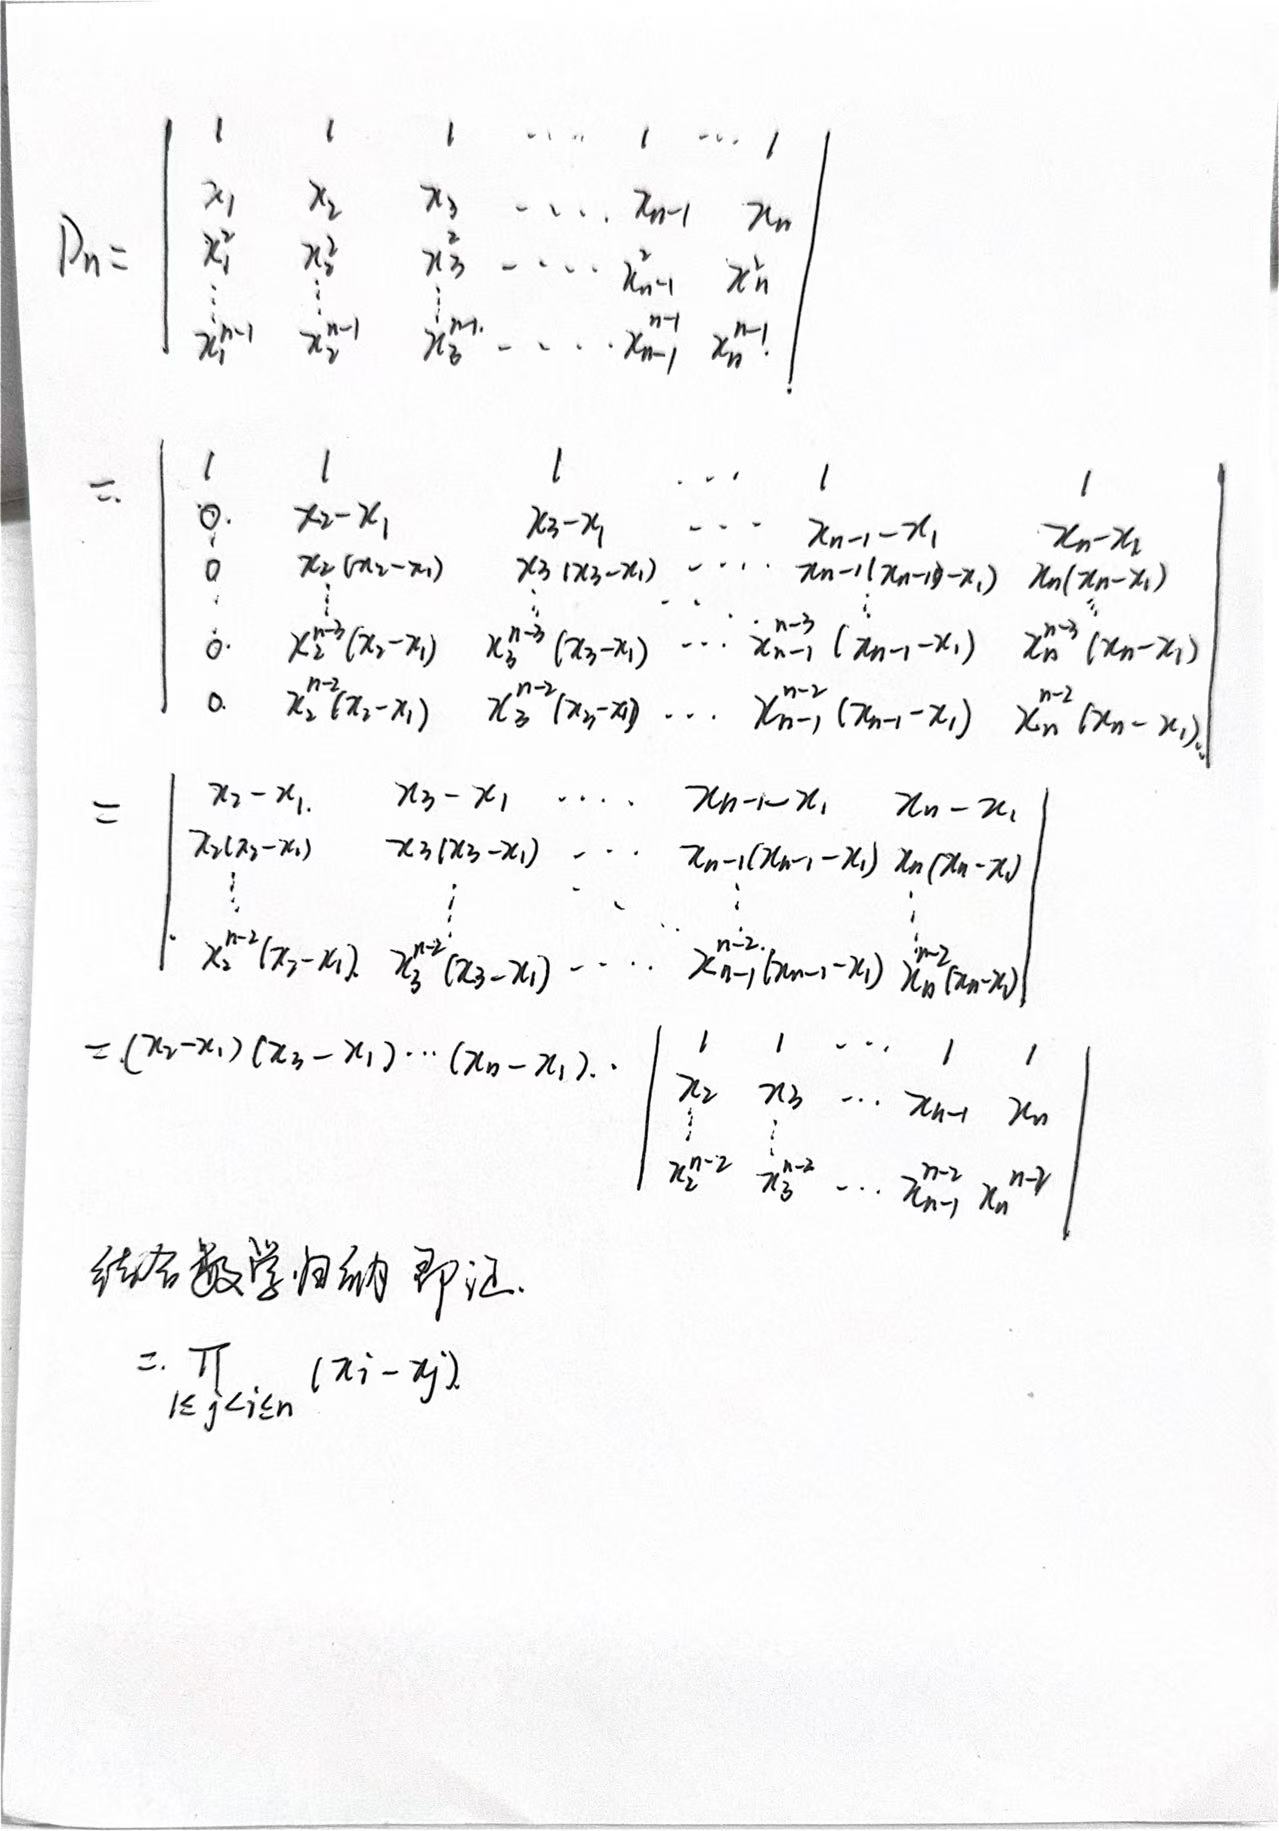 1 1 1 ···· 1 ··· 1
x₁ x₂ x₃ ····· xₙ₋₁ xₙ
Dₙ= x₁² x₂² x₃² ····· xₙ₋₁² xₙ²
x₁ⁿ⁻¹ x₂ⁿ⁻¹ x₃ⁿ⁻¹ ····· xₙ₋₁ⁿ⁻¹ xₙⁿ⁻¹
= 1 1 1 ··· 1 1
0 x₂-x₁ x₃-x₁ ···· xₙ₋₁-x₁ xₙ-x₁
0 x₂(x₂-x₁) x₃(x₃-x₁) ····· xₙ₋₁(xₙ₋₁-x₁) xₙ(xₙ-x₁)
0 x₂ⁿ⁻³(x₂-x₁) x₃ⁿ⁻³(x₃-x₁) ··· xₙ₋₁ⁿ⁻³(xₙ₋₁-x₁) xₙⁿ⁻³(xₙ-x₁)
0 x₂ⁿ⁻²(x₂-x₁) x₃ⁿ⁻²(x₃-x₁) ··· xₙ₋₁ⁿ⁻²(xₙ₋₁-x₁) xₙⁿ⁻²(xₙ-x₁)
= x₂-x₁ x₃-x₁ ···· xₙ₋₁-x₁ xₙ-x₁
x₂(x₂-x₁) x₃(x₃-x₁) ···· xₙ₋₁(xₙ₋₁-x₁) xₙ(xₙ-x₁)
x₂ⁿ⁻²(x₂-x₁) x₃ⁿ⁻²(x₃-x₁) ···· xₙ₋₁ⁿ⁻²(xₙ₋₁-x₁) xₙⁿ⁻²(xₙ-x₁)
=(x₂-x₁)(x₃-x₁)···(xₙ-x₁)· 1 1 ··· 1 1
x₂ x₃ ··· xₙ₋₁ xₙ
x₂ⁿ⁻² x₃ⁿ⁻² ··· xₙ₋₁ⁿ⁻² xₙⁿ⁻²
结合数学归纳即证.
= Π (xi-xj)
1≤j<i≤n